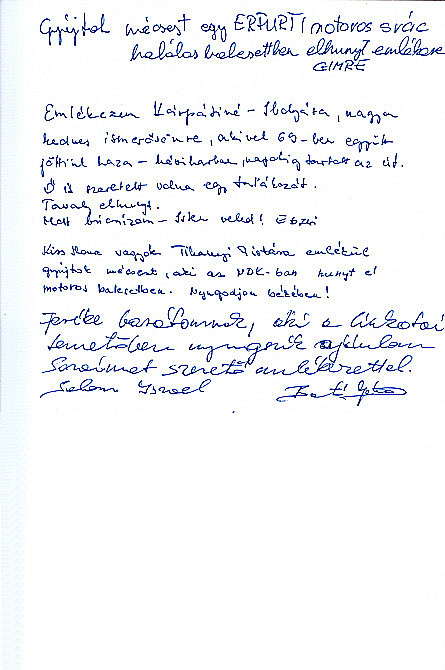 Gyújtok mécsest egy ERFURTI motoros srác
halálos balesetben elhunyt emlékére
GIMRE
Emlékezem Kárpátiné - Ibolyára, nagyon
kedves ismerősömre, akivel 69-ben együtt
jöttünk haza - hóviharban, napokig tartott az út.
Ő is szeretett volna egy találkozót.
Tavaly elhunyt.
Most búcsúzom - Isten veled! Eszti
Kiss Ilona vagyok Tihanyi Pistára emlékül
gyújtok mécsest, aki az NDK-ban hunyt el
motoros balesetben. Nyugodjon békében!
barátomnak, aki a Cinkotai
temetőben nyugszik ajánlom
Soraimat szerető emlékezettel.
Salom Israel